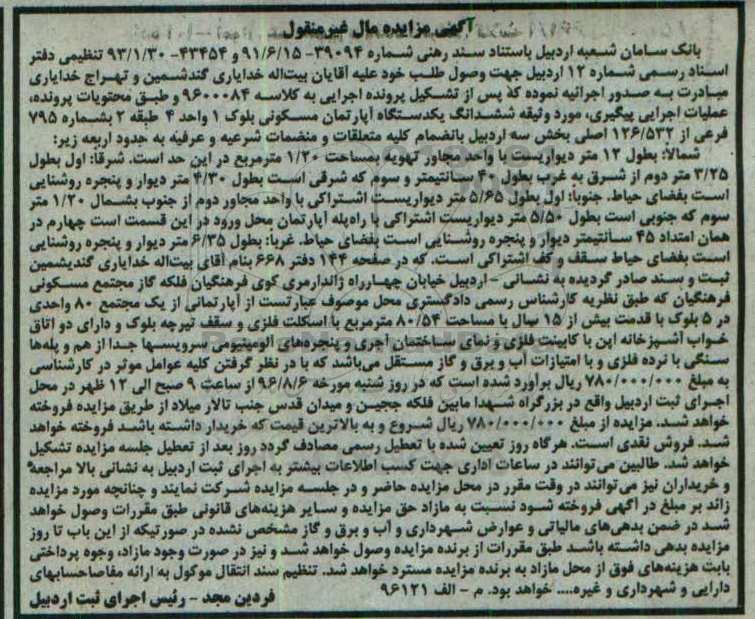 آگهی مزایده مال غیرمنقول
بانک سامان شعبه اردبیل باستناد سند رهنی شماره ۳۹۰۹۴- ۹۱/۶/۱۵ و ۴۳۴۵۴- ۹۳/۱/۳۰ تنظیمی دفتر
اسناد رسمی شماره ۱۲ اردبیل جهت وصول طلب خود علیه آقایان بیت‌اله خدایاری گندشمین و تهراج خدایاری
مبادرت به صدور اجرائیه نموده که پس از تشکیل پرونده اجرایی به کلاسه ۹۶۰۰۰۸۴ و طبق محتویات پرونده،
عملیات اجرایی پیگیری، مورد وثیقه ششدانگ یکدستگاه آپارتمان مسکونی بلوک ۱ واحد ۴ طبقه ۲ بشماره ۷۹۵
فرعی از ۱۲۶/۵۳۲ اصلی بخش سه اردبیل بانضمام کلیه متعلقات و منضمات شرعیه و عرفیه به حدود اربعه زیر:
شمالا: بطول ۱۲ متر دیواریست با واحد مجاور تهویه بمساحت ۱/۲۰ مترمربع در این حد است. شرقا: اول بطول
۳/۲۵ متر دوم از شرق به غرب بطول ۴۰ سانتیمتر و سوم که شرقی است بطول ۴/۳۰ متر دیوار و پنجره روشنایی
است بفضای حیاط. جنوبا: اول بطول ۵/۶۵ متر دیواریست اشتراکی با واحد مجاور دوم از جنوب بشمال ۱/۲۰ متر
سوم که جنوبی است بطول ۵/۵۰ متر دیواریست اشتراکی با راه‌پله آپارتمان محل ورود در این قسمت است چهارم در
همان امتداد ۴۵ سانتیمتر دیوار و پنجره روشنایی است بفضای حیاط. غربا: بطول ۶/۳۵ متر دیوار و پنجره روشنایی
است بفضای حیاط سقف و کف اشتراکی است. که در صفحه ۱۴۴ دفتر ۶۶۸ بنام آقای بیت‌اله خدایاری گندیشمین
ثبت و سند صادر گردیده به نشانی - اردبیل خیابان چهارراه ژاندارمری کوی فرهنگیان فلکه گاز مجتمع مسکونی
فرهنگیان که طبق نظریه کارشناس رسمی دادگستری محل موصوف عبارتست از آپارتمانی از یک مجتمع ۸۰ واحدی
در ۵ بلوک با قدمت بیش از ۱۵ سال با مساحت ۸۰/۵۴ مترمربع با اسکلت فلزی و سقف تیرچه بلوک و دارای دو اتاق
خواب آشپزخانه اپن با کابینت فلزی و نمای ساختمان آجری و پنجره‌های آلومینیومی سرویسها جدا از هم و پله‌ها
سنگی با نرده فلزی و با امتیازات آب و برق و گاز مستقل می‌باشد که با در نظر گرفتن کلیه عوامل موثر در کارشناسی
به مبلغ ۷۸۰/۰۰۰/۰۰۰ ریال برآورد شده است که در روز شنبه مورخه ۹۶/۸/۶ از ساعت ۹ صبح الی ۱۲ ظهر در محل
اجرای ثبت اردبیل واقع در بزرگراه شهدا مابین فلکه ججین و میدان قدس جنب تالار میلاد از طریق مزایده فروخته
خواهد شد. مزایده از مبلغ ۷۸۰/۰۰۰/۰۰۰ ریال شروع و به بالاترین قیمت که خریدار داشته باشد فروخته خواهد
شد. فروش نقدی است. هرگاه روز تعیین شده با تعطیل رسمی مصادف گردد روز بعد از تعطیل جلسه مزایده تشکیل
خواهد شد. طالبین می‌توانند در ساعات اداری جهت کسب اطلاعات بیشتر به اجرای ثبت اردبیل به نشانی بالا مراجعه
و خریداران نیز می‌توانند در وقت مقرر در محل مزایده حاضر و در جلسه مزایده شرکت نمایند و چنانچه مورد مزایده
زائد بر مبلغ در آگهی فروخته شود نسبت به مازاد حق مزایده و سایر هزینه‌های قانونی طبق مقررات وصول خواهد
شد در ضمن بدهی‌های مالیاتی و عوارض شهرداری و آب و برق و گاز مشخص نشده در صورتیکه از این باب تا روز
مزایده بدهی داشته باشد طبق مقررات از برنده مزایده وصول خواهد شد و نیز در صورت وجود مازاد، وجوه پرداختی
بابت هزینه‌های فوق از محل مازاد به برنده مزایده مسترد خواهد شد. تنظیم سند انتقال موکول به ارائه مفاصاحسابهای
دارایی و شهرداری و غیره.... خواهد بود. م - الف ۹۶۱۲۱
فردین مجد - رئیس اجرای ثبت اردبیل